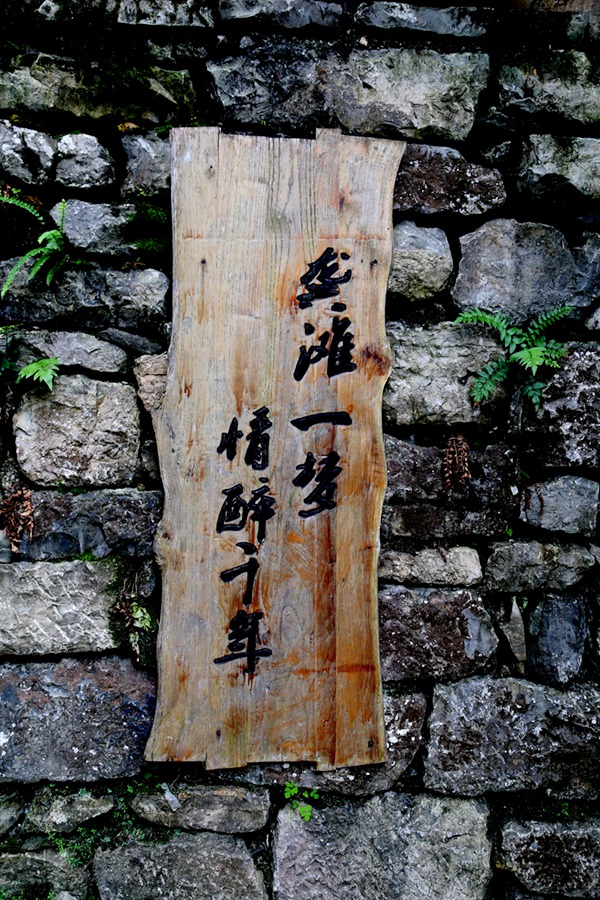 龚滩一梦
情醉千年